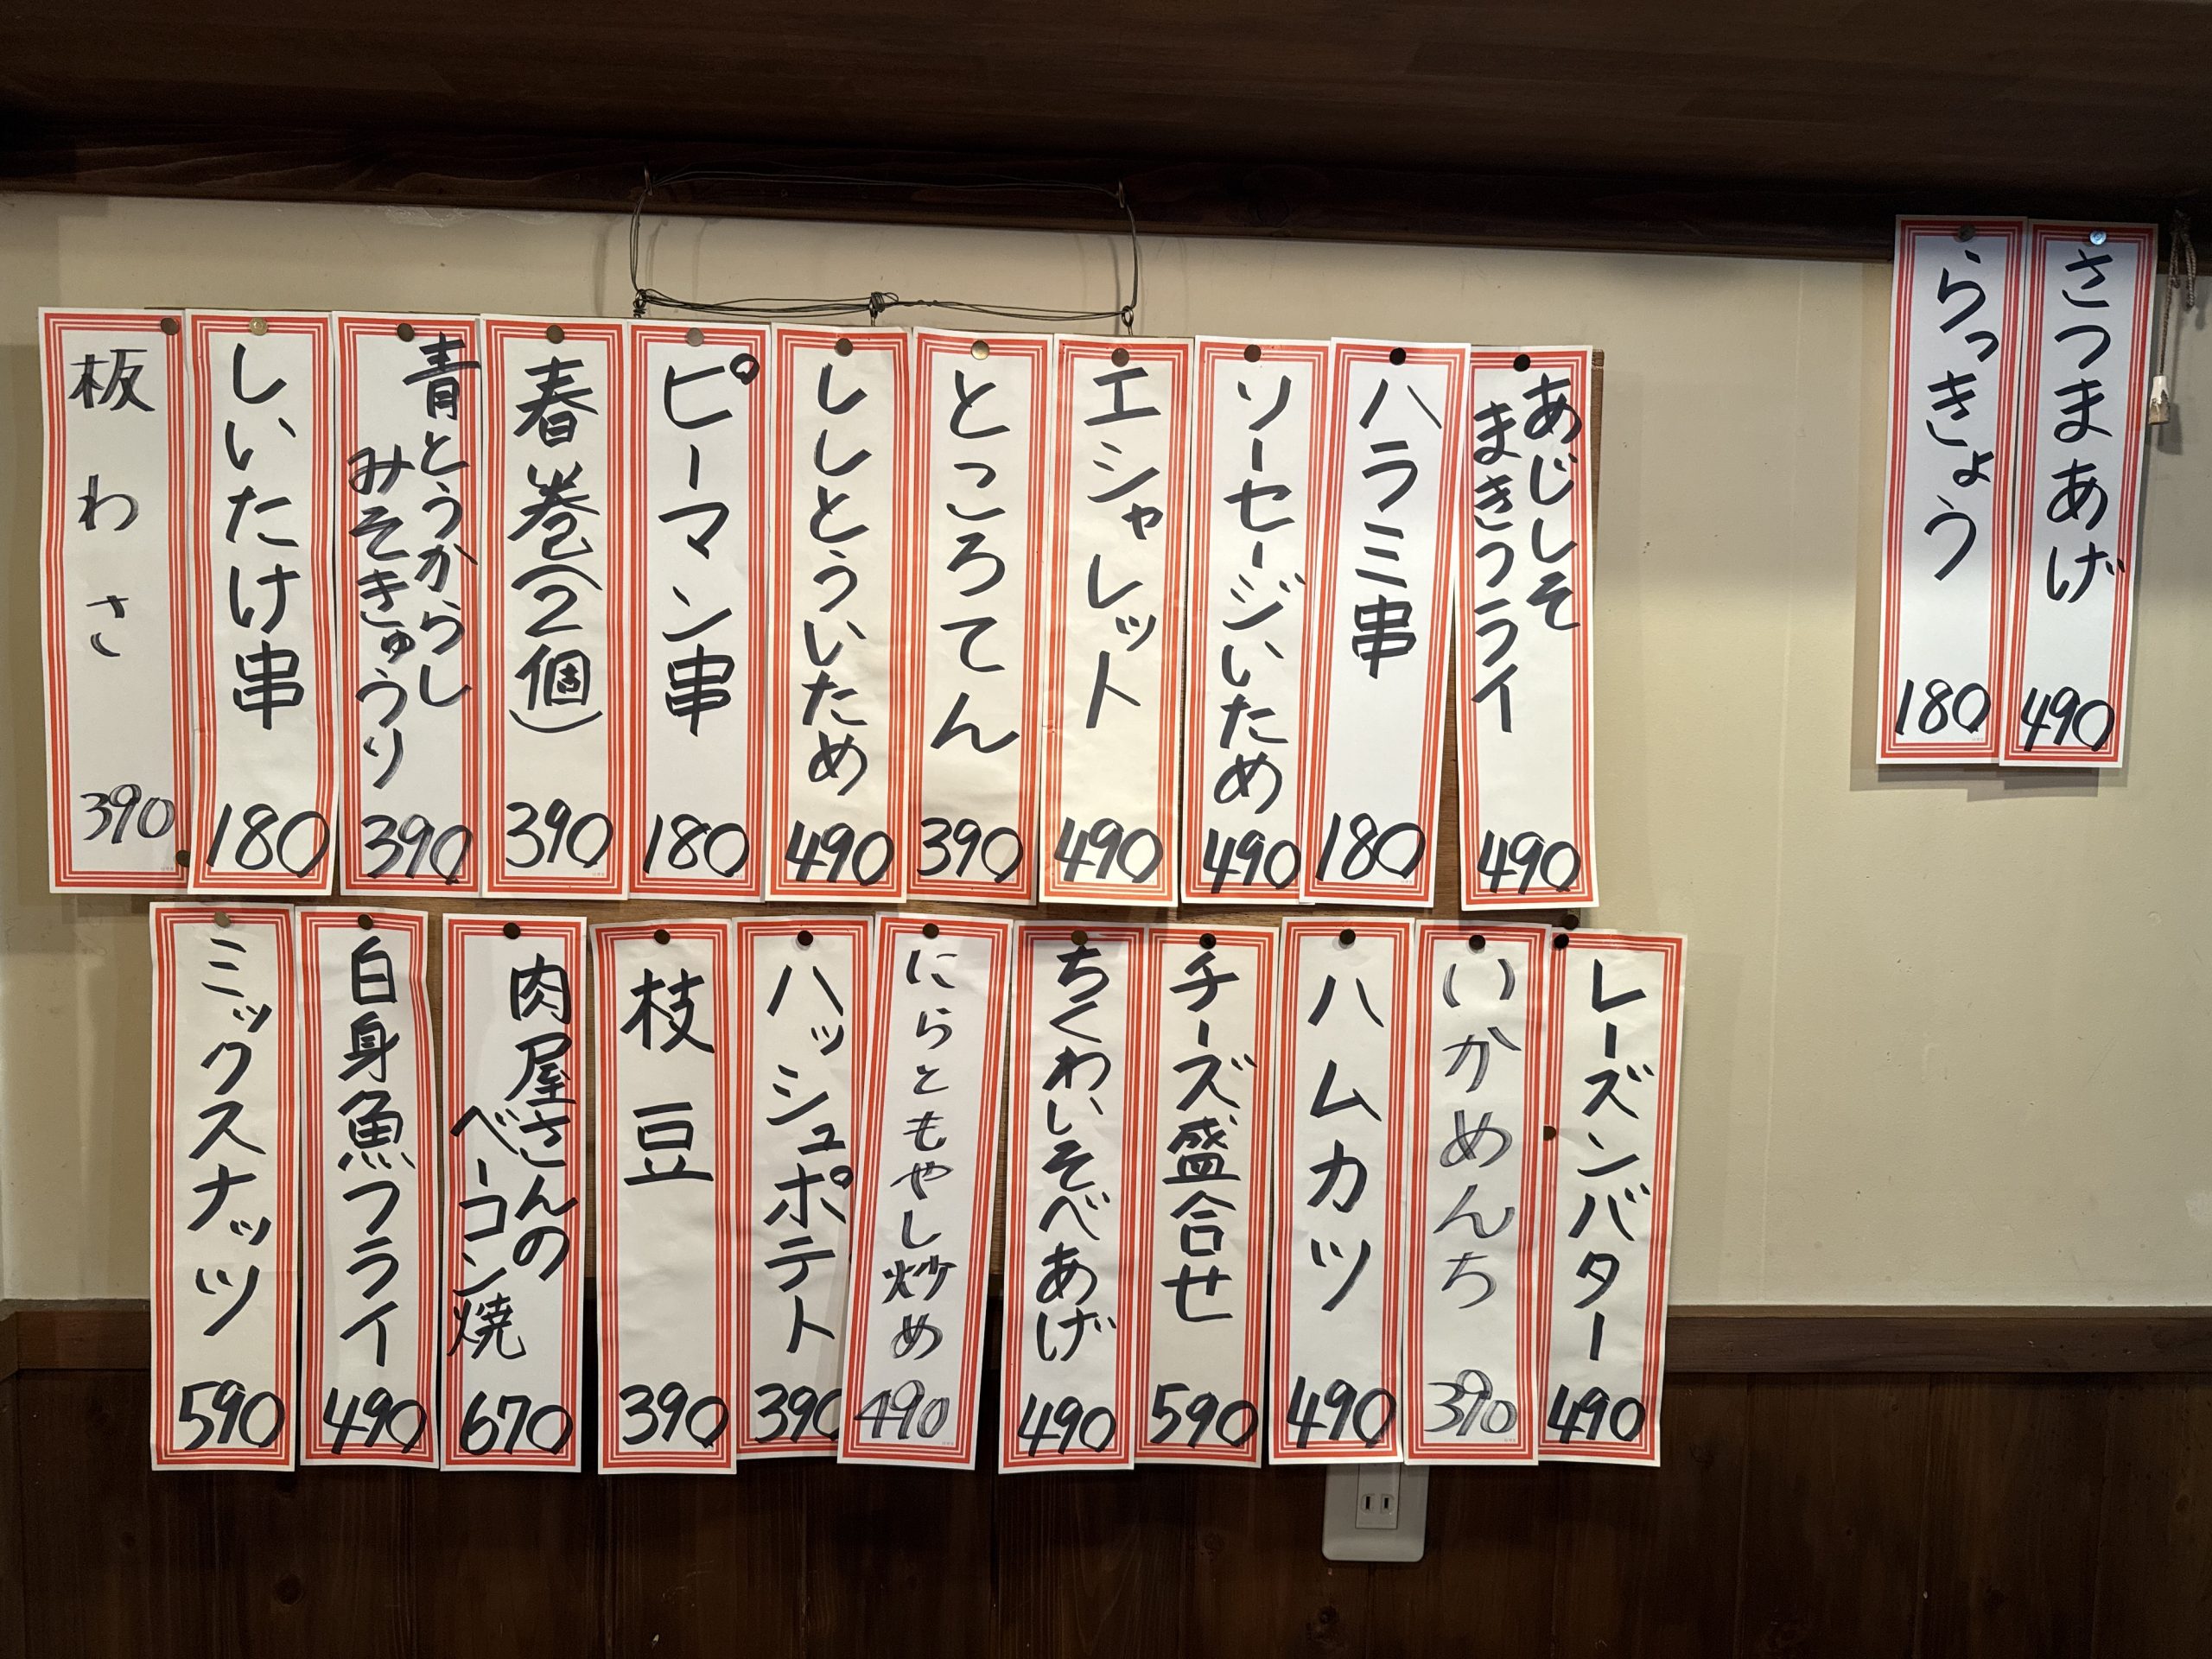 さつまあげ
490
らっきょう
180
あじしそ
まきフライ
490
ハラミ串
180
ソーセージいため
490
エシャレット
490
ところてん
390
ししとういため
490
ピーマン串
180
春巻(2個)
390
青とうからし
みそきゅうり
390
しいたけ串
180
板わさ
390
レーズンバター
490
いかめんち
390
ハムカツ
490
チーズ盛合せ
590
ちくわいそべあげ
490
にらともやし炒め
490
ハッシュポテト
390
枝豆
390
肉屋さんの
ベーコン焼
670
白身魚フライ
490
ミックスナッツ
590